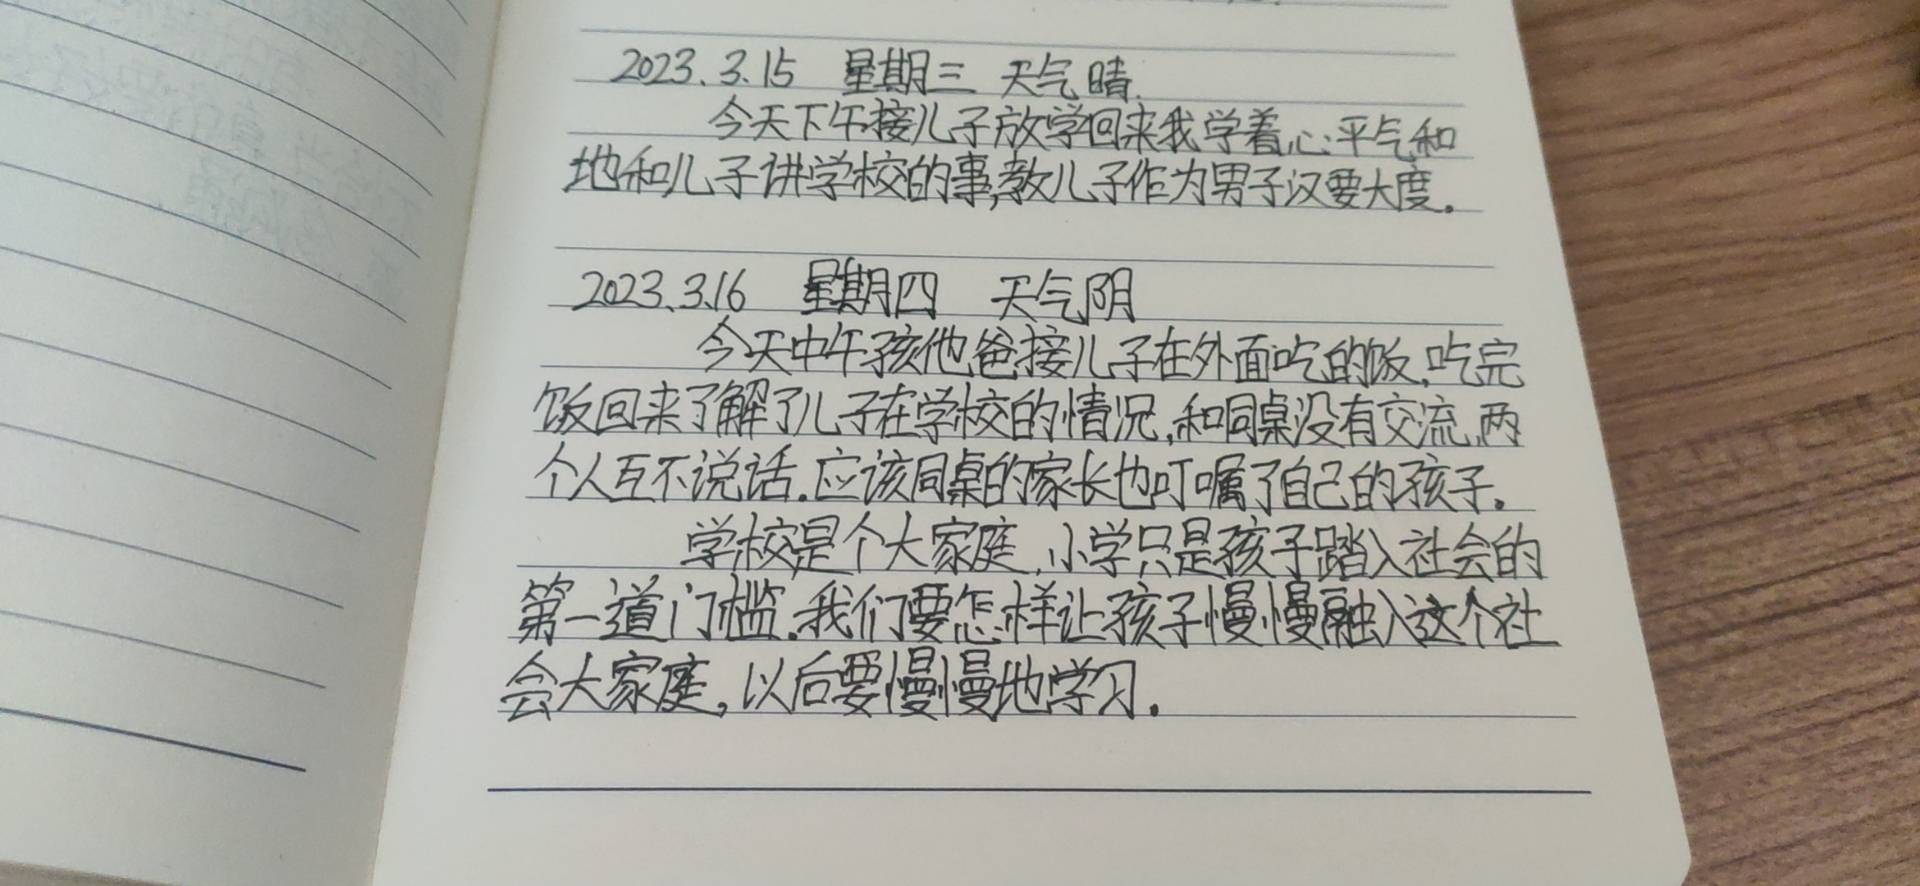 2023.3.15 星期三 天气晴.
今天下午接儿子放学回来我学着心平气和
地和儿子讲学校的事,教儿子作为男子汉要大度。
2023.3.16 星期四 天气阴
今天中午孩他爸接儿子在外面吃的饭,吃完
饭回来了解了儿子在学校的情况,和同桌没有交流,两
个人互不说话。应该同桌的家长也叮嘱了自己的孩子。
学校是个大家庭,小学只是孩子踏入社会的
第一道门槛。我们要怎样让孩子慢慢融入这个社
会大家庭,以后要慢慢地学习。